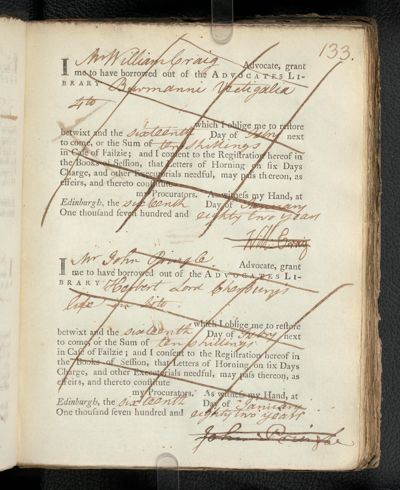 133.
I Mr William Craig Advocate, grant
me to have borrowed out of the ADVOCATES LI-
BRARY Burmanni Vectigalia
4to
which I oblige me to reſtore
betwixt and the sixteenth Day of July next
to come, or the Sum of ten shillings
in Caſe of Failzie; and I conſent to the Regiſtration hereof in
the Books of Seſſion, that Letters of Horning on ſix Days
Charge, and other Executorials needful, may paſs thereon, as
effeirs, and thereto conſtitute
my Procurators. As witneſs my Hand, at
Edinburgh, the sixteenth Day of January
One thouſand ſeven hundred and eighty two years
Will. Craig
I Mr John Pringle Advocate, grant
me to have borrowed out of the ADVOCATES LI-
BRARY Herbert Lord Cherburys
life in 4to.
which I oblige me to reſtore
betwixt and the sixteenth Day of July next
to come, or the Sum of ten shillings
in Caſe of Failzie; and I conſent to the Regiſtration hereof in
the Books of Seſſion, that Letters of Horning on ſix Days
Charge, and other Executorials needful, may paſs thereon, as
effeirs, and thereto conſtitute
my Procurators. As witneſs my Hand, at
Edinburgh, the sixteenth Day of January
One thouſand ſeven hundred and eighty two years
John Pringle